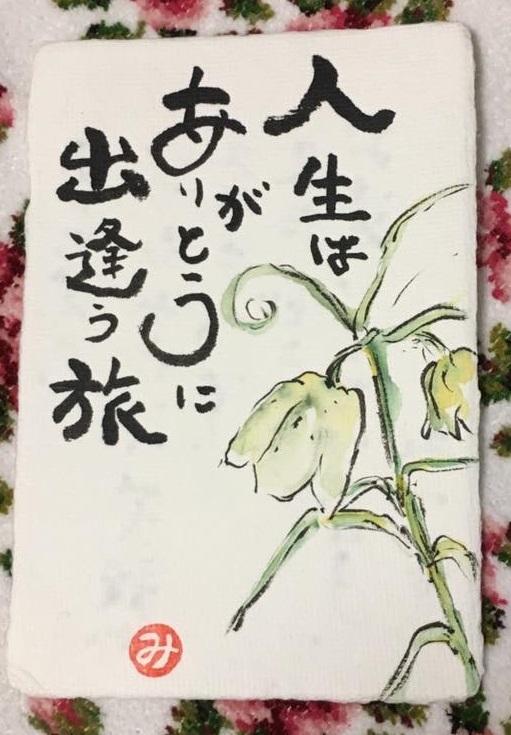 人生は
ありがとうに
出逢う旅
み